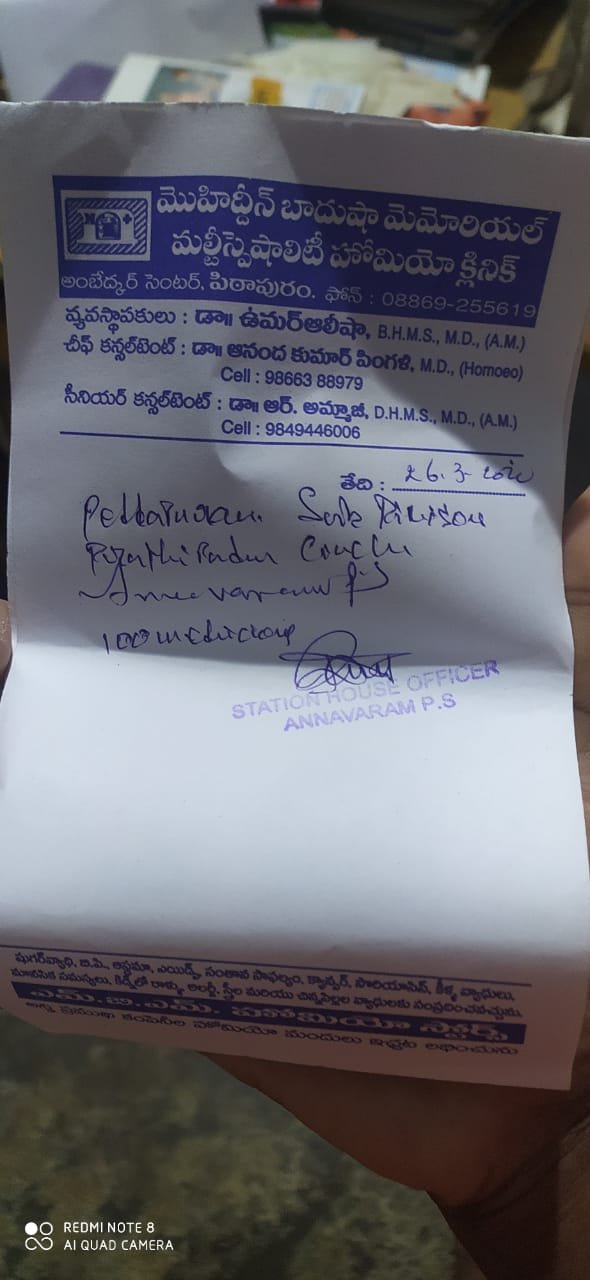 మొహిద్దీన్ బాదుషా మెమోరియల్
మల్టీస్పెషాలిటీ హోమియో క్లినిక్
అంబేద్కర్ సెంటర్, పిఠాపురం. ఫోన్ : 08869-255619
వ్యవస్థాపకులు : డా॥ ఉమర్ఆలీషా, B.H.M.S., M.D., (A.M.)
చీఫ్ కన్సల్‌టెంట్ : డా॥ ఆనంద కుమార్ పింగళి, M.D., (Homoeo)
Cell : 98663 88979
సీనియర్ కన్సల్‌టెంట్ : డా॥ ఆర్. అమ్మాజీ, D.H.M.S., M.D., (A.M.)
Cell : 9849446006
తేది : 26.3.
Sub Division
Annavaram P.S
100
STATION HOUSE OFFICER
ANNAVARAM P.S
షుగర్‌వ్యాధి, బి.పి., ఆస్తమా, ఎయిడ్స్, సంతాన సాఫల్యం, క్యాన్సర్, సొరియాసిస్, కీళ్ళ వ్యాధులు,
మానసిక సమస్యలు, కిడ్నీలో రాళ్ళు, అలర్జీ, స్త్రీల మరియు చిన్నపిల్లల వ్యాధులకు సంప్రదించవచ్చును.
ఎమ్.బి.ఎమ్. హోమియో స్టోర్స్
అన్ని ప్రముఖ కంపెనీల హోమియో మందులు ఇచ్చట లభించును
REDMI NOTE 8
AI QUAD CAMERA